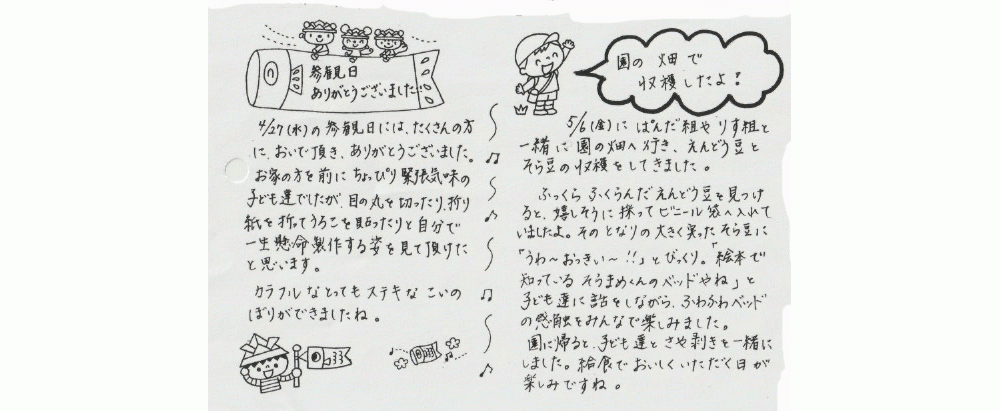 参観日
ありがとうございました!!
4/27(水)の参観日には、たくさんの方
に、おいで頂き、ありがとうございました。
お家の方を前にちょっぴり緊張気味の
子ども達でしたが、目の丸を切ったり、折り
紙を折ってうろこを貼ったりと自分で
一生懸命製作する姿を見て頂けた
と思います。
カラフルなとってもステキなこいの
ぼりができましたね。
園の畑で
収穫したよ!
5/6(金)にぱんだ組やりす組と
一緒に園の畑へ行き、えんどう豆と
そら豆の収穫をしてきました。
ふっくらふくらんだえんどう豆を見つけ
ると、嬉しそうに採ってビニール袋へ入れて
いましたよ。そのとなりの大きく実ったそら豆に
「うわ〜おっきい〜!!」とびっくり。「絵本で
知っているそらまめくんのベッドやね」と
子ども達に話をしながら、ふわふわベッド
の感触をみんなで楽しみました。
園に帰ると、子ども達とさや剥きを一緒に
しました。給食でおいしくいただく日が
楽しみですね。